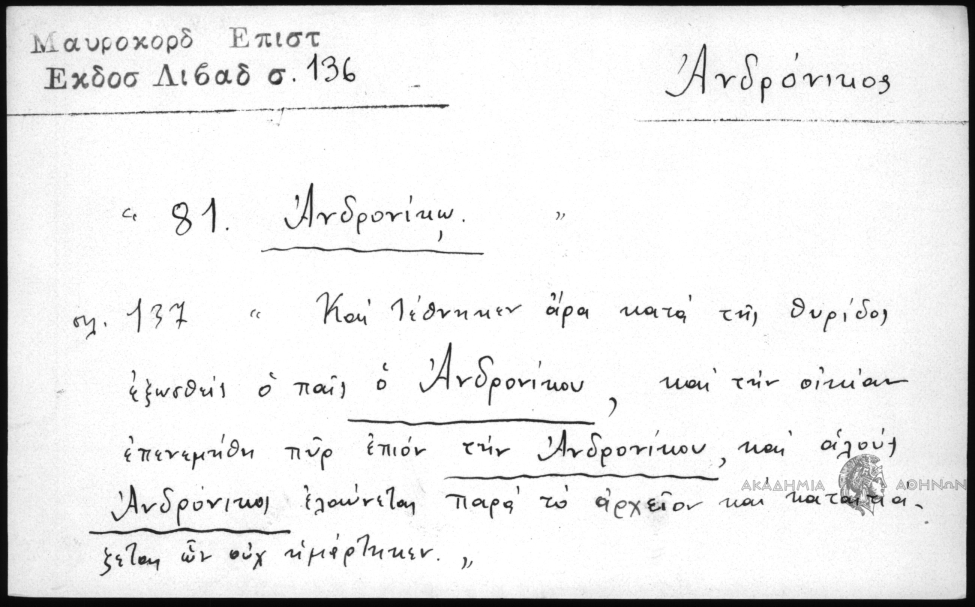 Μαυροκορδ Επιστ
Εκδοσ Λιβαδ σ. 136
Ἀνδρόνικος
“ 81. Ἀνδρονίκῳ. ”
σλ. 137 “ Καὶ τέθνηκεν ἄρα κατὰ τῆς θυρίδος
ἐξωσθεὶς ὁ παῖς ὁ Ἀνδρονίκου, καὶ τὴν οἰκίαν
ἐπενεμήθη πῦρ ἐπιὸν τὴν Ἀνδρονίκου, καὶ ἁλοὺς
ΑΚΑΔΗΜΙΑ ΑΘΗΝΩΝ
Ἀνδρόνικος ἐλαύνεται παρὰ τὸ ἀρχεῖον καὶ καταιτιά-
ζεται ὧν οὐχ ἡμάρτηκεν. „